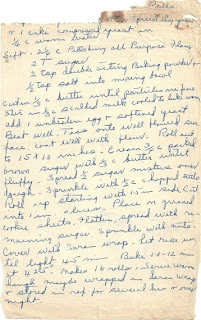 Rolls
1 cake compressed yeast in
1/4 c warm water
Sift - 2 1/2 c Pillsbury All Purpose Flour
2 T sugar
2 tsp double acting Baking Powder
1/2 tsp salt into mixing bowl
Cut in 1/2 c butter until particles are fine
Stir in 1/2 c scalded milk cooled to luke warm
add 1 unbeaten egg & softened yeast
Beat well. Toss onto well floured sur
face, coat well with flour. Roll out
to 15 x 12 inches. Cream 3/4 c packed
brown sugar with 1/2 c butter until
fluffy. Spread 1/2 sugar mixture on
dough. Sprinkle with 1/2 c chopped nuts
Roll up starting with 15 in side. Cut
into 1 in slices. Place on greased
cookie sheets. Flatten, spread with re
maining sugar. Sprinkle with nuts.
Cover with Saran wrap. Let rise un
til light 45 min Bake 10-12 min
at 425. Makes 16 rolls. Serve warm
dough maybe wrapped in saran wrap
or stored in ref for several hrs or over
night.